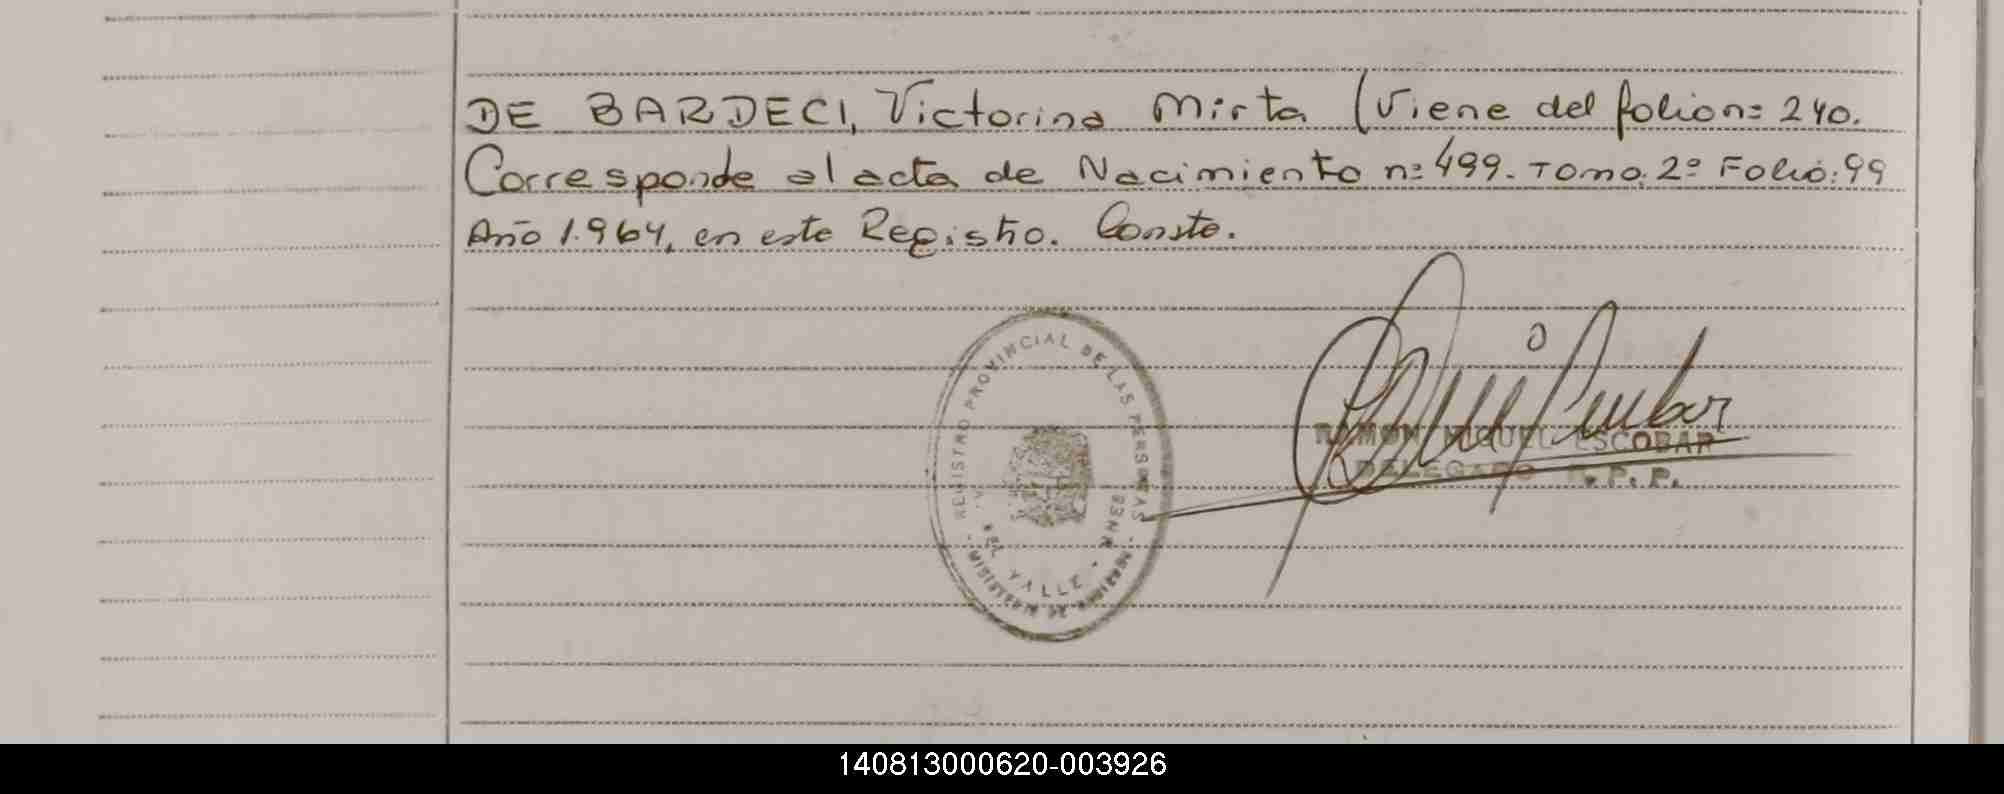 DE BARDECI, Victorina Mirta (Viene del folio n: 240.
Corresponde al acta de Nacimiento n: 499. Tomo: 2º Folio: 99
Año 1.964, en este Registro. Conste.
REGISTRO PROVINCIAL DE LAS PERSONAS
RAMON MIGUEL ESCOBAR
DELEGADO R. P. P.
140813000620-003926